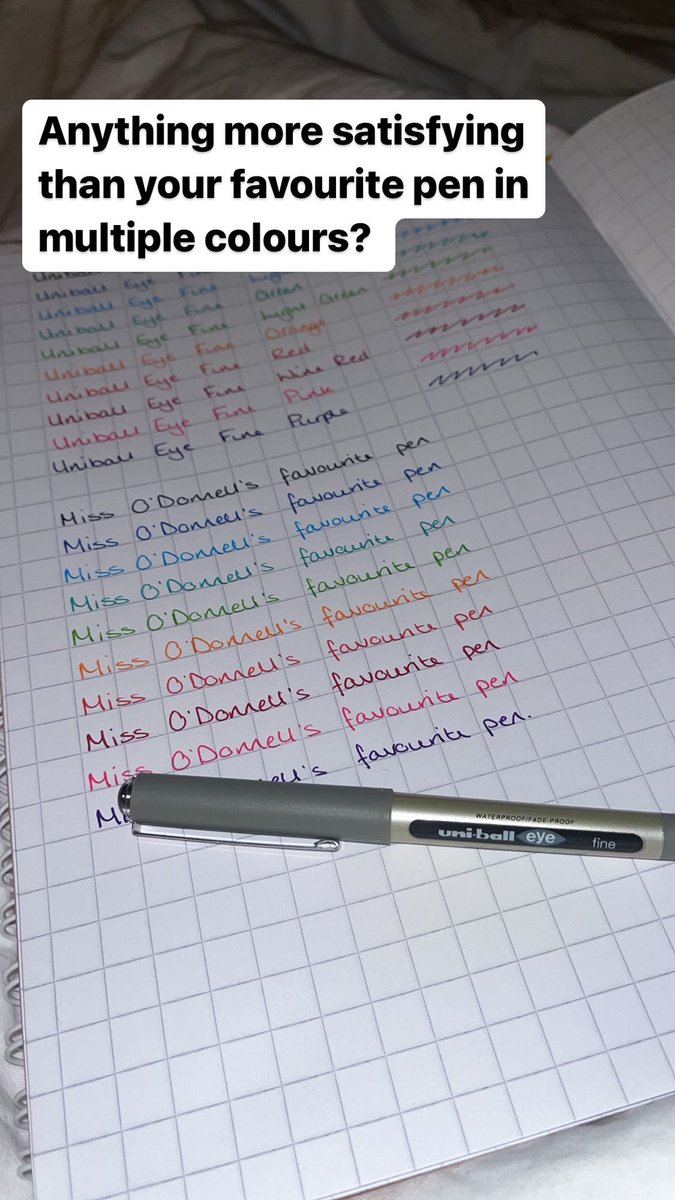 Anything more satisfying
than your favourite pen in
multiple colours?
Uniball Eye
Uniball Eye Fine
Uniball Eye Fine Green
Uniball Eye Fine Light Green
Uniball Eye Fine Orange
Uniball Eye Fine Red
Uniball Eye Fine Wine Red
Uniball Eye Fine Pink
Uniball Eye Fine Purple
Miss O'Donnell's favourite pen
Miss O'Donnell's favourite pen
Miss O'Donnell's favourite pen
Miss O'Donnell's favourite pen
Miss O'Donnell's favourite pen
Miss O'Donnell's favourite pen
Miss O'Donnell's favourite pen
Miss O'Donnell's favourite pen
Miss O'Donnell's favourite pen
favourite pen.
WATERPROOF/FADE-PROOF
uni-ball eye fine